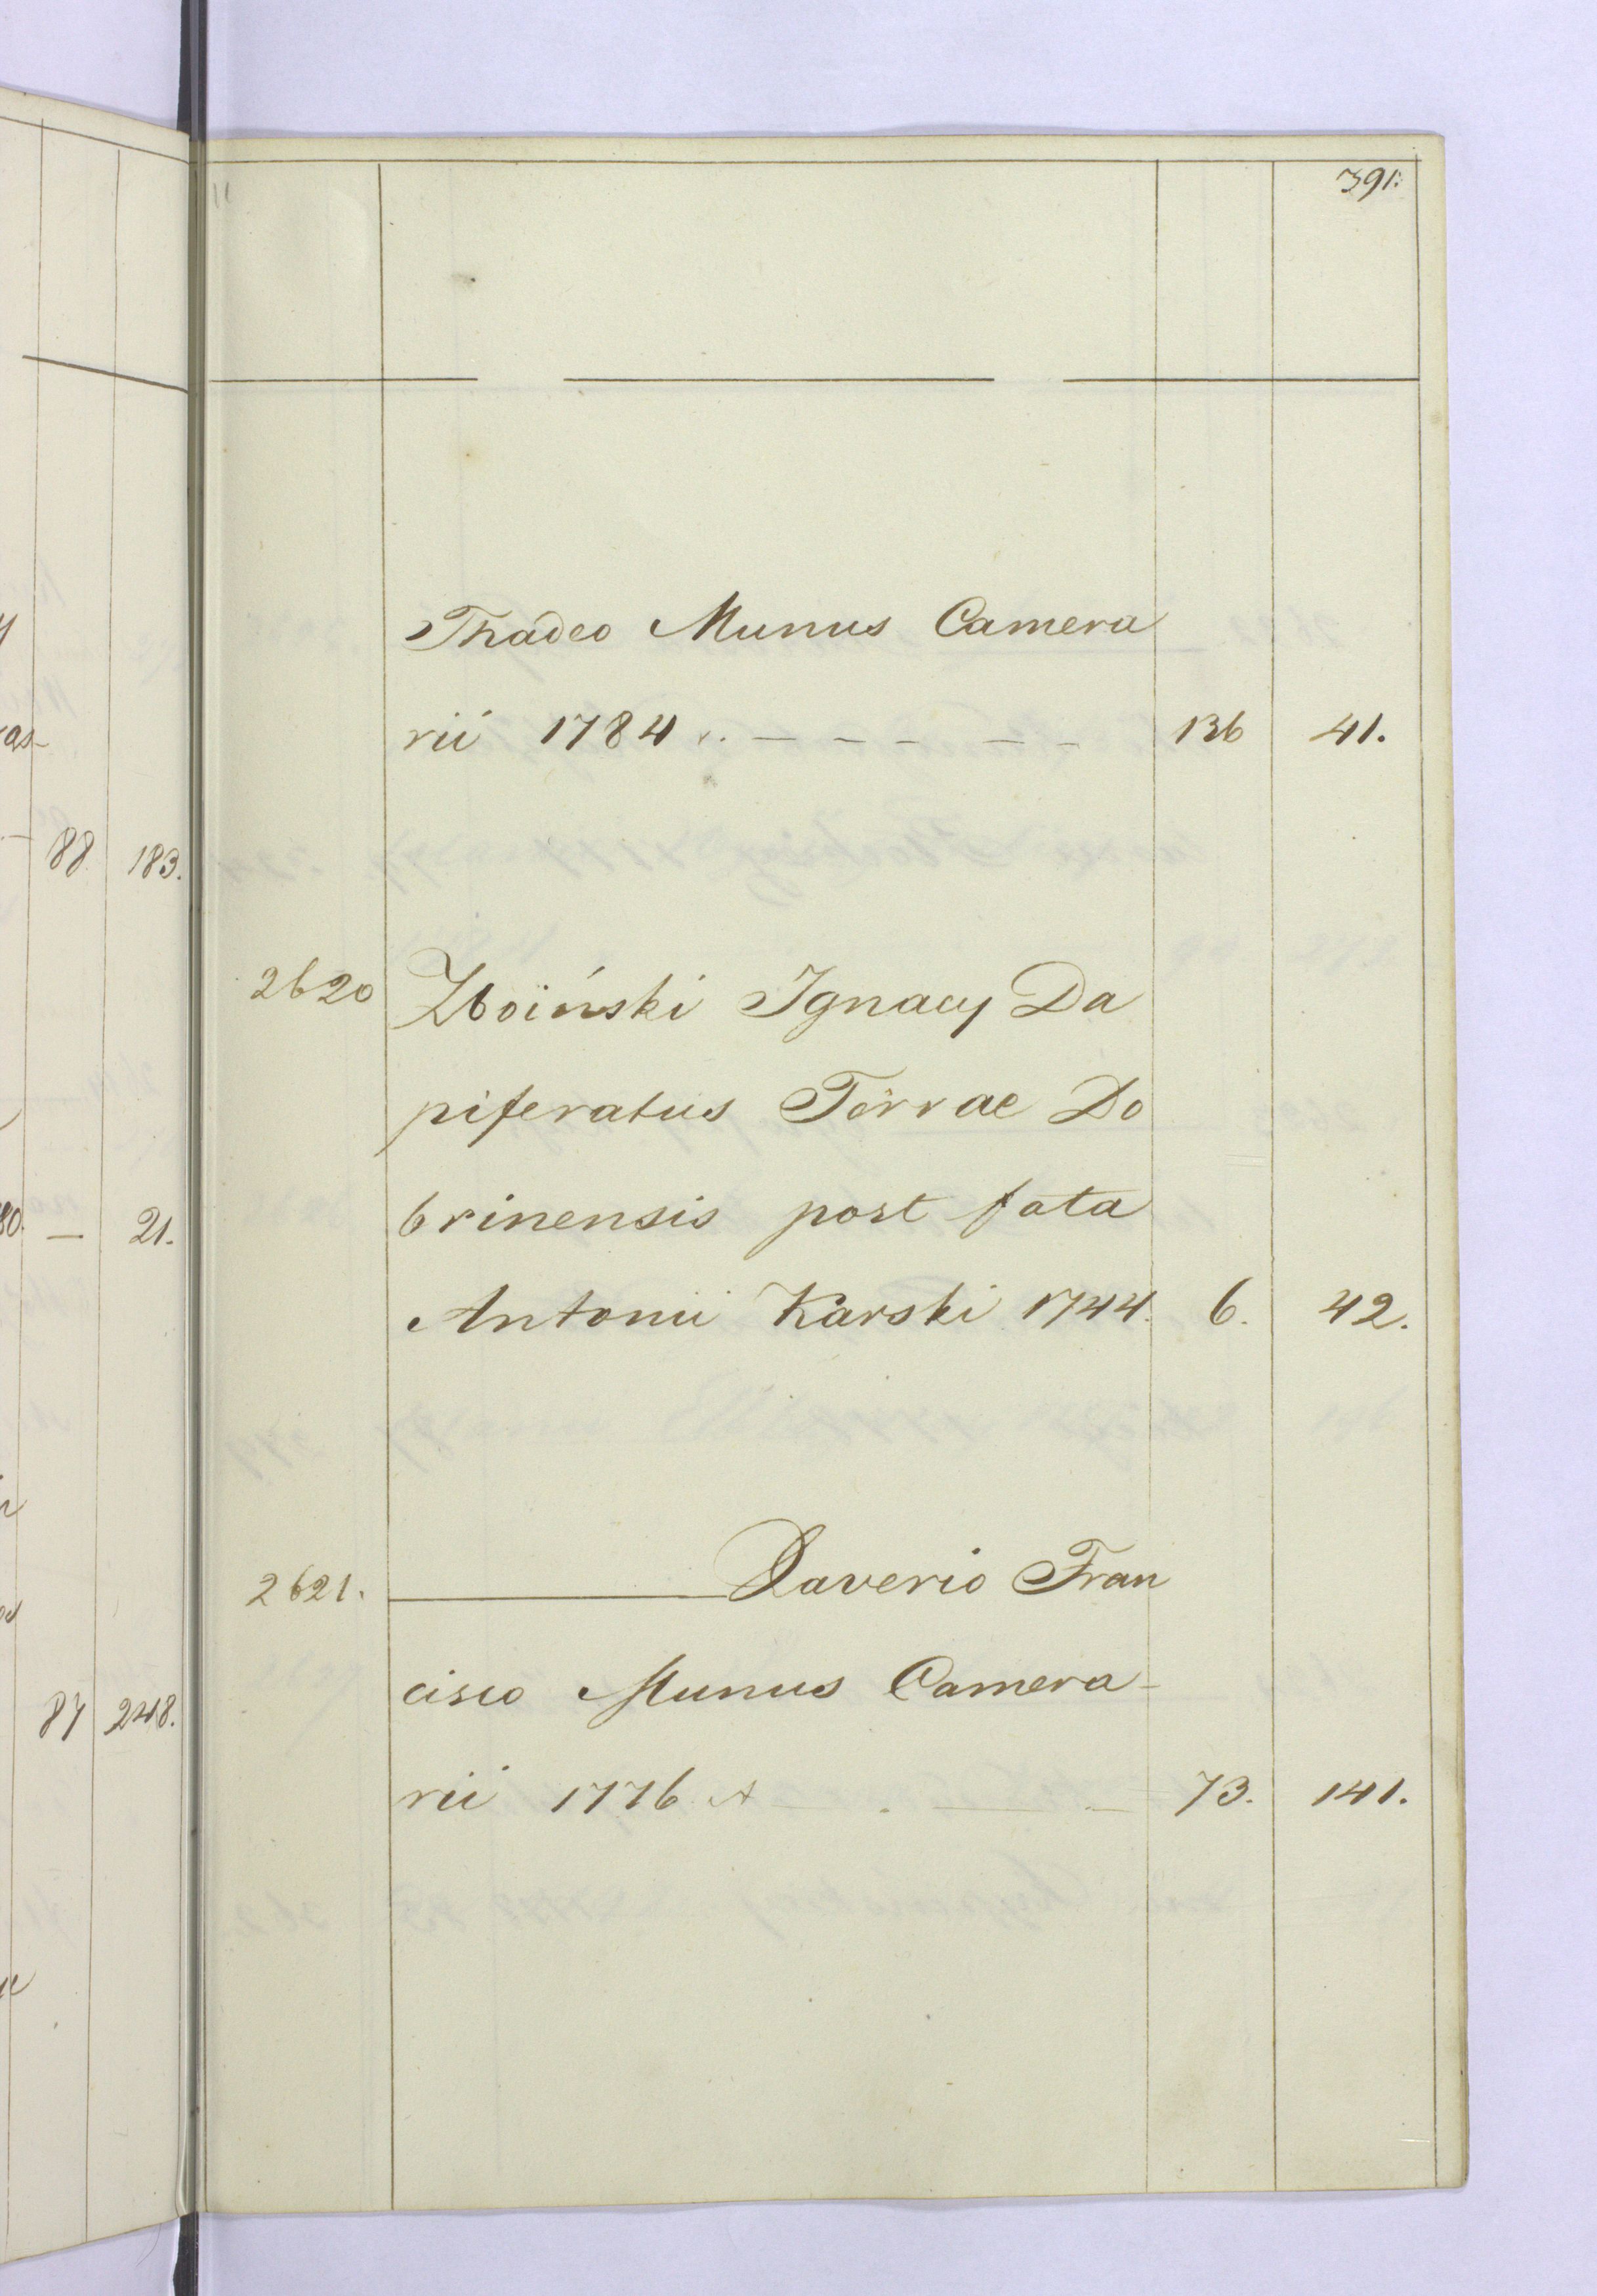 391.
Thadeo Munus Camera
rii 1784 136 41.
2620 Zboiński Ignacy Da
piferatus Terrae Do
brinensis post fata
Antonii Karski 1744. 6. 42.
2621. Xaverio Fran
cisco Munus Camera-
rii 1776 73. 141.
88. 183.
21.
87 248.